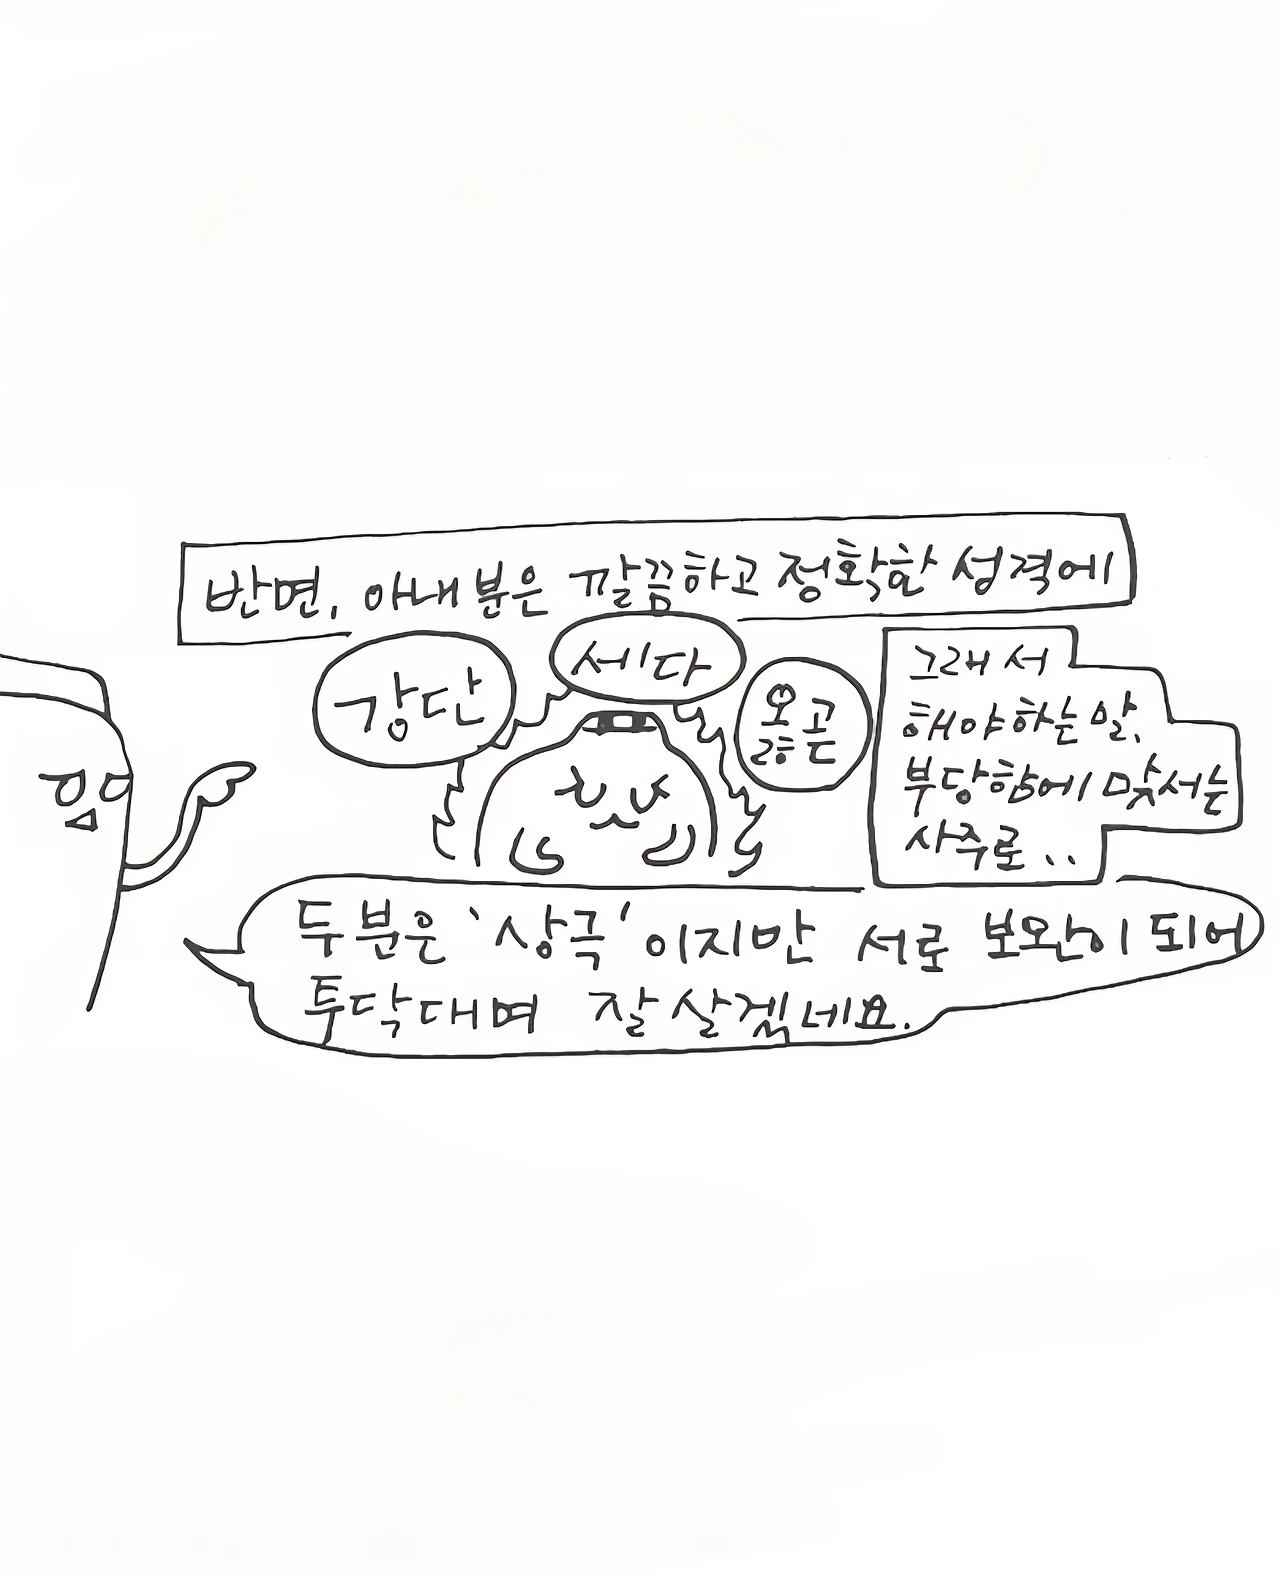 반면, 아내분은 깔끔하고 정확한 성격에
강단
세다
올곧
그래서
해야하는 말,
부당함에 맞서는
사주로..
두분은 '상극' 이지만 서로 보완이 되어
투닥대며 잘 살겠네요.